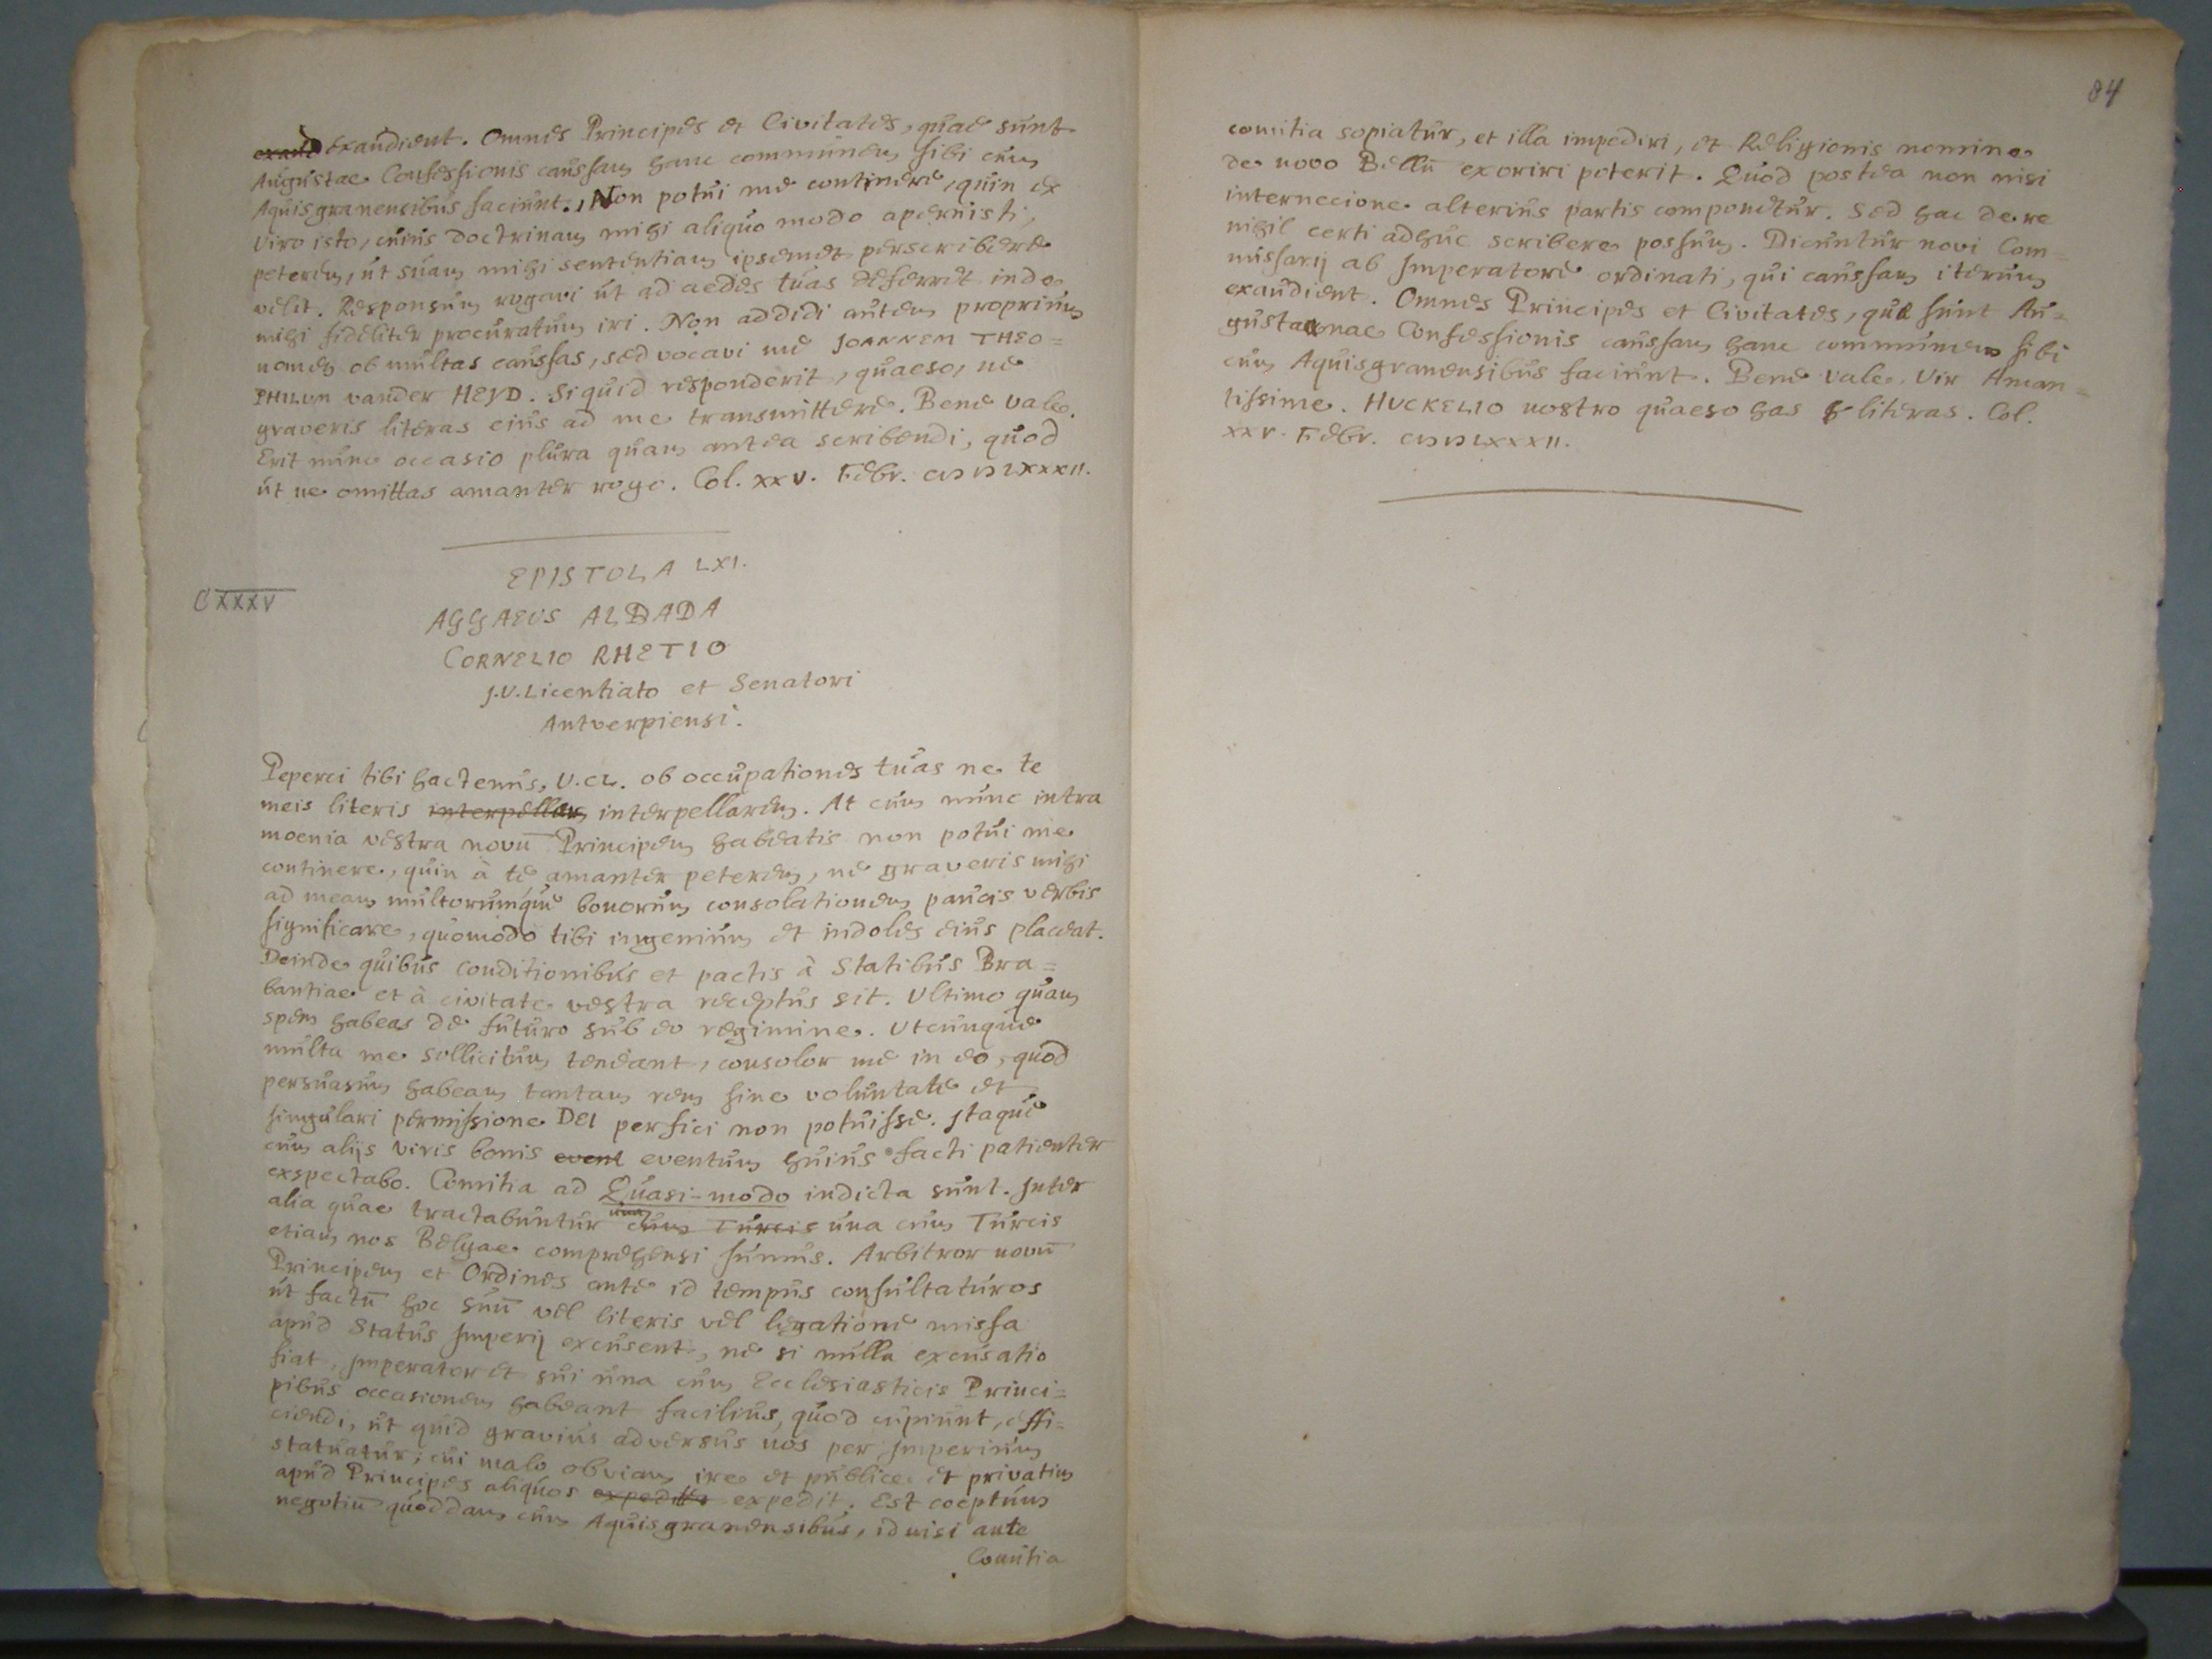 exaud exaudient. Omnes Principes et Civitates, quae sunt
Augustae Confessionis caussam hanc communem sibi cum
Aquisgranensibus faciunt. Non potui me continere, quin ex
viro isto, cuius doctrinam mihi aliquo modo aperuisti,
peterem, ut suam mihi sententiam ipsemet perscribere
velit. Responsum rogavi ut ad aedes tuas deferret inde
mihi fideliter procuratum iri. Non addidi autem proprium
nomen ob multas caussas, sed vocavi me JOANNEM THEO=
PHILUM vander HEYD. Siquid responderit, quaeso, ne
graveris literas eius ad me transmittere. Bene vale.
Erit nunc occasio plura quam antea scribendi, quod
ut ne omittas amanter rogo. Col. XXV. Febr. CIƆIƆLXXXII.
EPISTOLA LXI.
CXXXV
AGGAEUS ALBADA
CORNELIO RHETIO
J.U. Licentiato et Senatori
Antverpiensi.
Peperci tibi hactenus, V.CL. ob occupationes tuas ne te
meis literis interpellam interpellarem. At cum nunc intra
moenia vestra novū Principem habeatis non potui me
continere, quin à te amanter peterem, ne graveris mihi
ad meam multorumque bonorum consolationem paucis verbis
significare, quomodo tibi ingenium et indoles eius placeat.
Deinde quibus conditionibus et pactis à Statibus Bra=
bantiae et à civitate vestra receptus sit. Ultimo quam
spem habeas de futuro sub eo regimine. Utcunque
multa me sollicitum teneant, consolor me in eo, quod
persuasum habeam tantam rem sine voluntate et
singulari permissione DEI perfici non potuisse. Itaque
cum alijs viris bonis event eventum huius facti patienter
exspectabo. Comitia ad Quasi-modo indicta sunt. Inter
alia quae tractabuntur una cum Turcis una cum Turcis
etiam nos Belgae comprehensi sumus. Arbitror novū
Principem et Ordines ante id tempus consultaturos
ut factū hoc suū vel literis vel legatione missa
apud Status Imperij excusent, ne si nulla excusatio
fiat, Imperator et sui una cum Ecclesiasticis Princi=
pibus occasionem habeant facilius, quod cupiunt, effi=
ciendi, ut quid gravius adversus nos per Imperium
statuatur; cui malo obviam ire et publice et privatim
apud Principes aliquos expedit. Est coeptum
negotiū quoddam cum Aquisgranensibus, id nisi ante
Comitia
84
comitia sopiatur, et illa impediri, et Religionis nomine
de novo Bellū exoriri poterit. Quod postea non nisi
internecione alterius partis componetur. Sed hac de re
nihil certi adhuc scribere possum. Dicuntur novi Com=
missarij ab Imperatore ordinati, qui caussam iterum
exaudient. Omnes Principes et Civitates, quae sunt Au=
gustanae Confessionis caussam hanc communem sibi
cum Aquisgranensibus faciunt. Bene vale, Vir Aman=
tissime. HUCKELIO nostro quaeso has literas. Col.
XXV. Febr. CIƆIƆLXXXII.